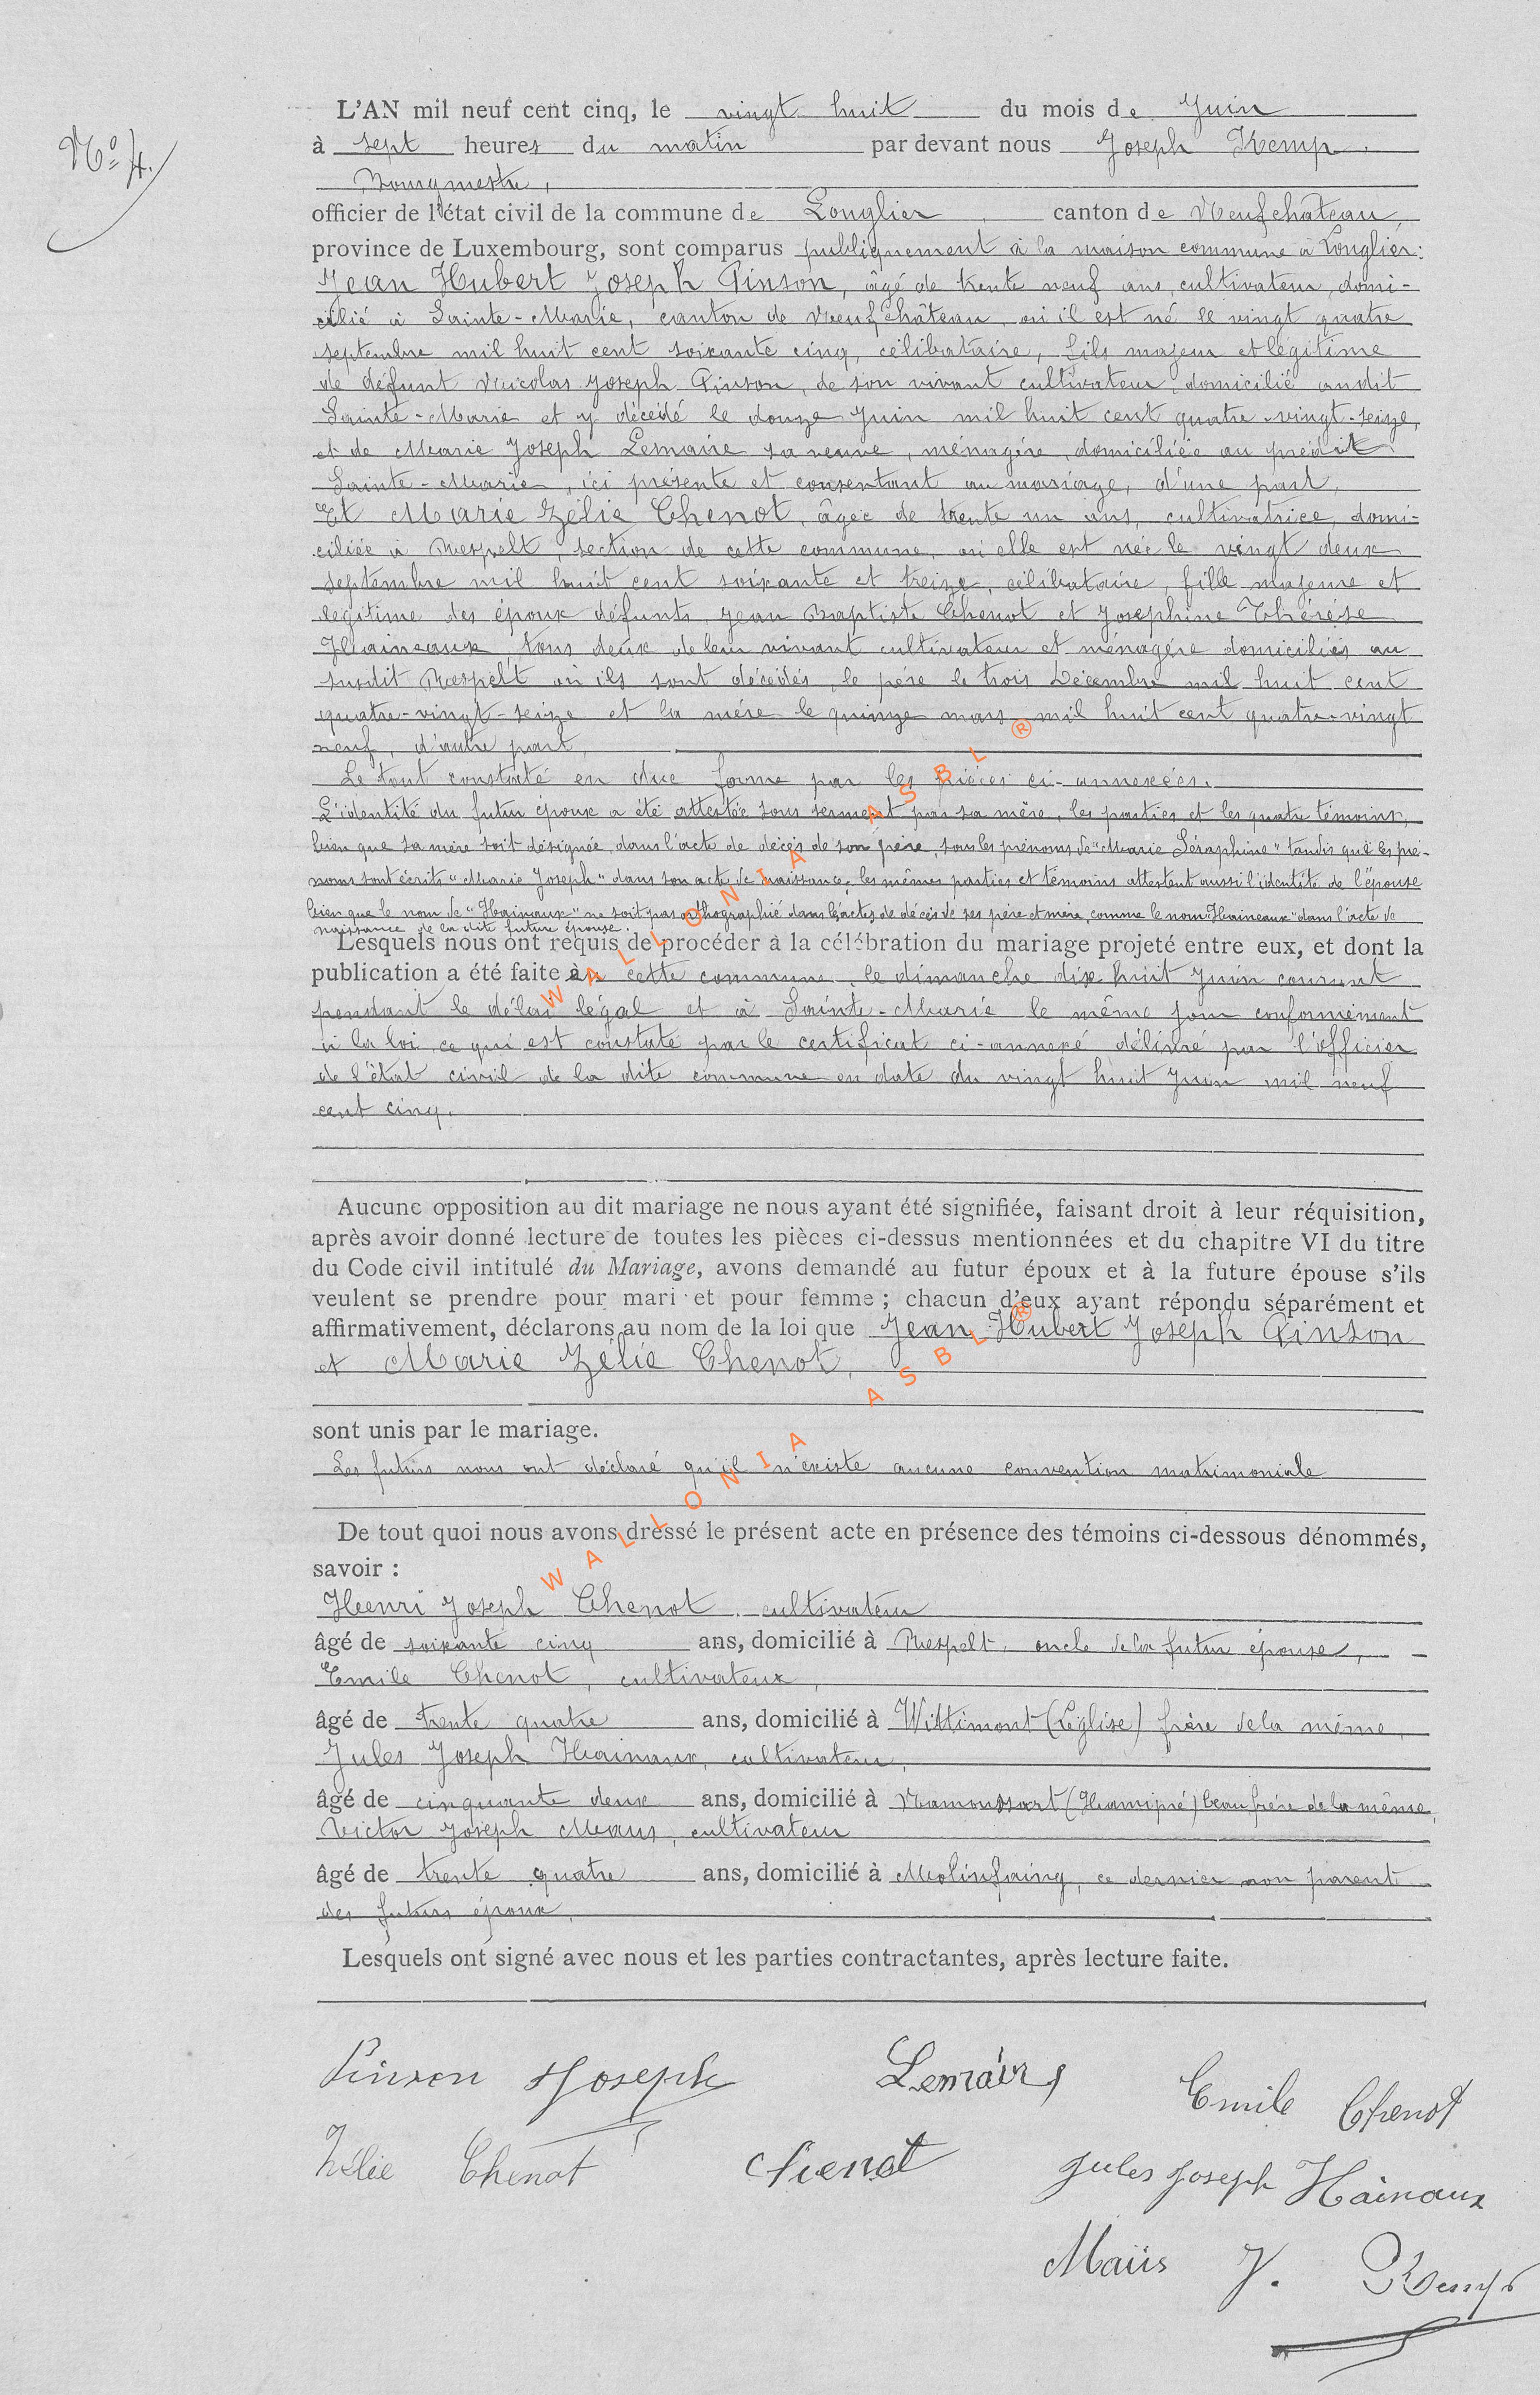 N° 4.
L'AN mil neuf cent cinq, le vingt huit du mois de Juin
à sept heures du matin par devant nous Joseph Kemp.
Bourgmestre,
officier de l'état civil de la commune de Longlier canton de Neufchâteau,
province de Luxembourg, sont comparus publiquement à la maison commune à Longlier:
Jean Hubert Joseph Pinson, âgé de trente neuf ans, cultivateur, domi-
cilié à Sainte-Marie, canton de Neufchâteau, où il est né le vingt quatre
septembre mil huit cent soixante cinq, célibataire, fils majeur et légitime
de défunt Nicolas Joseph Pinson, de son vivant cultivateur, domicilié audit
Sainte-Marie et y décédé le douze Juin mil huit cent quatre-vingt-seize,
et de Marie Joseph Lemaire sa veuve, ménagère, domiciliée au prédit
Sainte-Marie, ici présente et consentant au mariage, d'une part,
Et Marie Zélie Chenot, âgée de trente un ans, cultivatrice, domi-
ciliée à Respelt, section de cette commune, où elle est née le vingt deux
septembre mil huit cent soixante et treize, célibataire, fille majeure et
légitime des époux défunts Jean Baptiste Chenot et Joséphine Thérèse
Haineaux, tous deux de leur vivant cultivateur et ménagère domiciliés au
susdit Respelt où ils sont décédés, le père le trois Décembre mil huit cent
quatre-vingt-seize et la mère le quinze mars mil huit cent quatre-vingt
neuf, d'autre part,
Le tout constaté en due forme par les pièces ci-annexées.
L'identité du futur époux a été attestée sous serment par sa mère, les parties et les quatre témoins,
bien que sa mère soit désignée, dans l'acte de décès de son père, sous les prénoms de "Marie Séraphine" tandis que les pré-
noms sont écrits "Marie Joseph" dans son acte de naissance; les mêmes parties et témoins attestent aussi l'identité de l'épouse
bien que le nom de "Hainaux" ne soit pas orthographié dans les actes de décès de ses père et mère, comme le nom "Haineaux" dans l'acte de
naissance de la dite future épouse.
Lesquels nous ont requis de procéder à la célébration du mariage projeté entre eux, et dont la
publication a été faite en cette commune, le dimanche dix huit Juin courant
pendant le délai légal et à Sainte-Marie le même jour conformément
à la loi, ce qui est constaté par le certificat ci-annexé délivré par l'officier
de l'état civil de la dite commune en date du vingt huit Juin mil neuf
cent cinq.
Aucune opposition au dit mariage ne nous ayant été signifiée, faisant droit à leur réquisition,
après avoir donné lecture de toutes les pièces ci-dessus mentionnées et du chapitre VI du titre
du Code civil intitulé du Mariage, avons demandé au futur époux et à la future épouse s'ils
veulent se prendre pour mari et pour femme ; chacun d'eux ayant répondu séparément et
affirmativement, déclarons au nom de la loi que Jean Hubert Joseph Pinson
et Marie Zélie Chenot,
sont unis par le mariage.
Les futurs nous ont déclaré qu'il n'existe aucune convention matrimoniale
De tout quoi nous avons dressé le présent acte en présence des témoins ci-dessous dénommés,
savoir :
Henri Joseph Chenot, cultivateur
âgé de soixante cinq ans, domicilié à Respelt, oncle de la futur épouse,
Emile Chenot, cultivateur,
âgé de trente quatre ans, domicilié à Wittimont (Léglise) frère de la même,
Jules Joseph Hainaux, cultivateur,
âgé de cinquante deux ans, domicilié à Namoussart (Hamipré) beau frère de la même,
Victor Joseph Maus, cultivateur
âgé de trente quatre ans, domicilié à Molinfaing, ce dernier non parent
des futurs époux,
Lesquels ont signé avec nous et les parties contractantes, après lecture faite.
Pinson Joseph Lemaire Emile Chenot
Zélie Chenot Chenot Jules Joseph Hainaux
Maüs V. Kemp
WALLONIA ASBL ®
WALLONIA ASBL ®